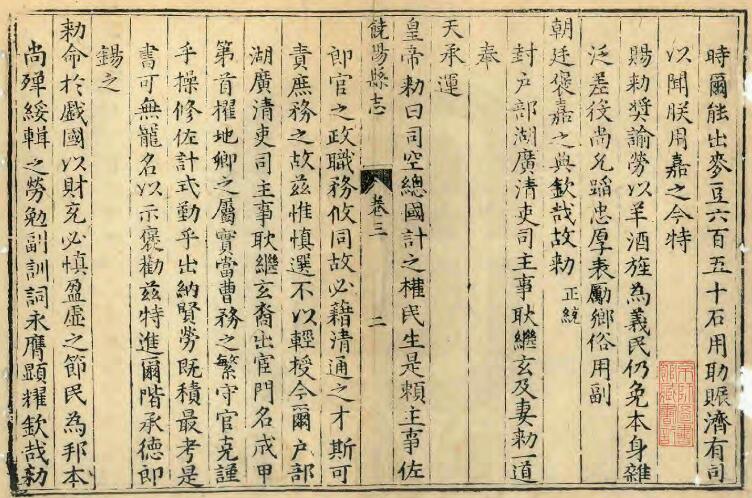 時爾能出麥豆六百五十石用助賑濟有司
以聞朕用嘉之今特
賜勅奬諭勞以羊酒旌為義民仍免本身雜
泛差役尚允蹈忠厚表勵鄉俗用副
朝廷褒嘉之典欽哉故勅 正統
封户部湖廣清吏司主事耿繼玄及妻勅一道
奉
天承運
皇帝勅曰司空總國計之權民生是賴主事佐
饒陽縣志 卷三 二
郎官之政職務攸同故必藉清通之才斯可
責庶務之故兹惟慎選不以輕授今爾户部
湖廣清吏司主事耿繼玄裔出宦門名成甲
第首擢地卿之屬實當曹務之繁守官克謹
乎操修佐計式勤乎出納賢勞既積最考是
書可無寵名以示褒勸兹特進爾階承德郎
錫之
勅命於戲國以財充必慎盈虛之節民為邦本
尚殫綏輯之勞勉副訓詞永膺顯耀欽哉勅